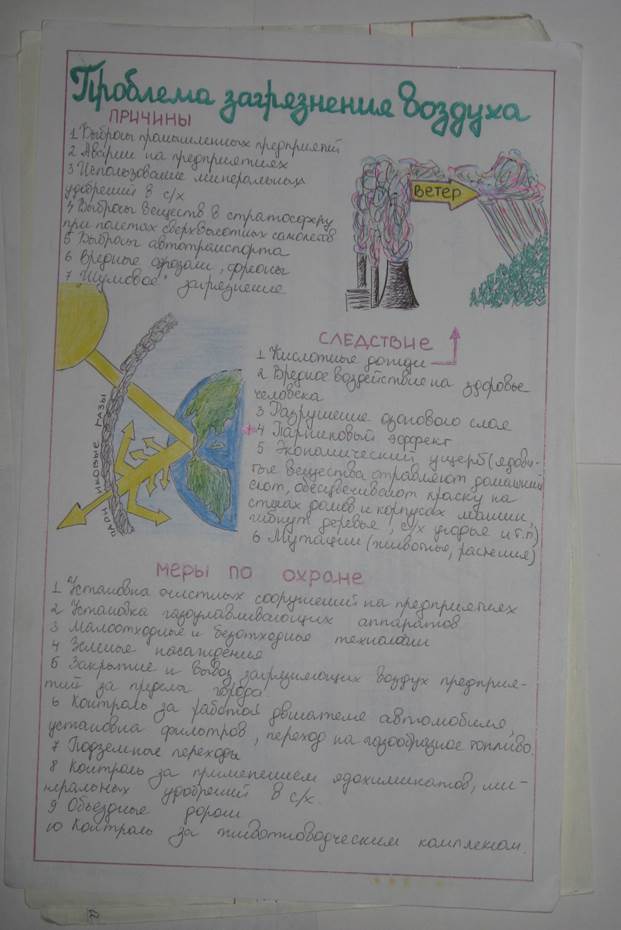 Проблема загрязнения воздуха
ПРИЧИНЫ
1 Выбросы промышленных предприятий
2 Аварии на предприятиях
3 Использование минеральных
удобрений в с/х
4 Выбросы веществ в стратосферу
при полетах сверхвысотных самолетов
5 Выбросы автотранспорта
6 Вредные аэрозоли, фреоны
7 "Шумовое" загрязнение
ВЕТЕР
СЛЕДСТВИЕ
1 Кислотные дожди
2 Вредное воздействие на здоровье
человека
3 Разрушение озонового слоя
4 Парниковый эффект
5 Экономический ущерб (ядови-
тые вещества отравляют домашний
скот, обесцвечивают краску на
стенах домов и корпусах машин,
гибнут деревья, с/х угодья и т.п)
6 Мутации (животные, растения)
ПАРНИКОВЫЕ ГАЗЫ
МЕРЫ ПО ОХРАНЕ
1 Установка очистных сооружений на предприятиях
2 Установка газоулавливающих аппаратов
3 Малоотходные и безотходные технологии
4 Зеленые насаждения
5 Закрытие и вывоз загрязняющих воздух предприя-
тий за пределы города
6 Контроль за работой двигателя автомобиля,
установка фильтров, переход на газообразное топливо
7 Подземные переходы
8 Контроль за применением ядохимикатов, ми-
неральных удобрений в с/х.
9 Объездные дороги
10 Контроль за животноводческим комплексом.